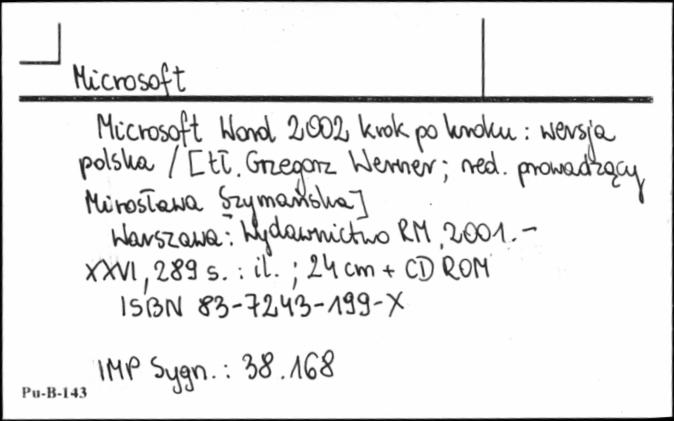 Microsoft
Microsoft Word 2002 krok po kroku : wersja
polska / [tł. Grzegorz Werner ; red. prowadzący
Mirosława Szymańska]
Warszawa : Wydawnictwo RM, 2001. -
XXVI, 289 s. : il. ; 24 cm + CD ROM
ISBN 83-7243-199-X
IMP Sygn. : 38.168
Pu-B-143